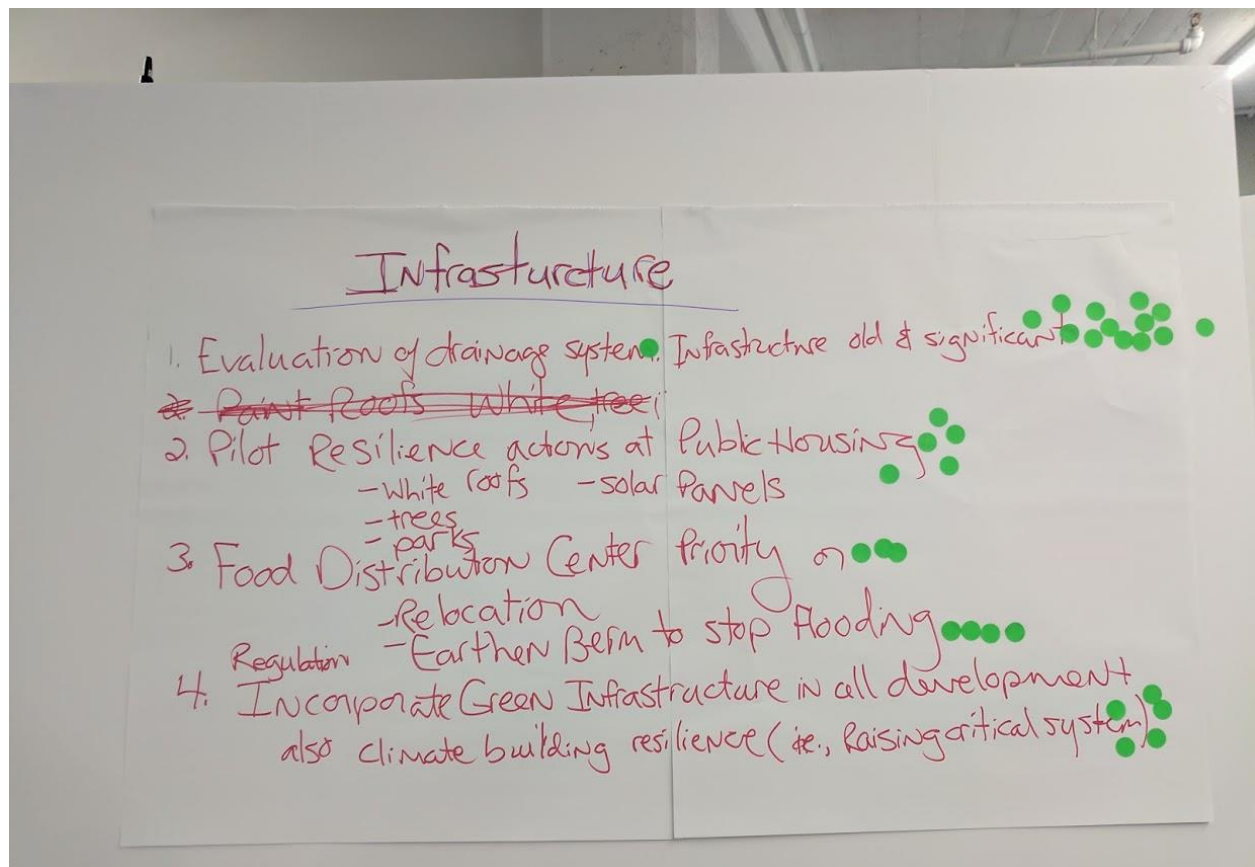 Infrasturcture
1. Evaluation of drainage system. Infrastructure old & significant
2. Paint Roofs White, tree
2. Pilot Resilience actions at Public Housing
- White roofs - solar Panels
- trees
- parks
3. Food Distribution Center Priority on
- Relocation
- Earthen Berm to stop flooding
Regulation
4. Incorporate Green Infrastructure in all development
also climate building resilience (ie., Raising critical system)